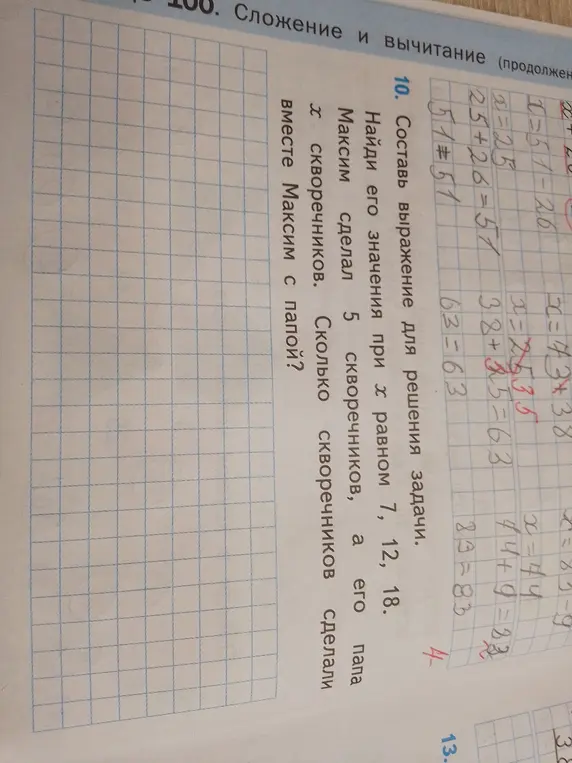 100. Сложение и вычитание (продолжен
x = 51 - 26
x = 43 + 38
x = 83 - 9
x = 25
x = 2535
x = 44
25 + 26 = 51
38 + 25 = 63
44 + 9 = 83
51 = 51
63 = 63
83 = 83
4
10. Составь выражение для решения задачи.
Найди его значения при x равном 7, 12, 18.
Максим сделал 5 скворечников, а его папа
x скворечников. Сколько скворечников сделали
вместе Максим с папой?
13.